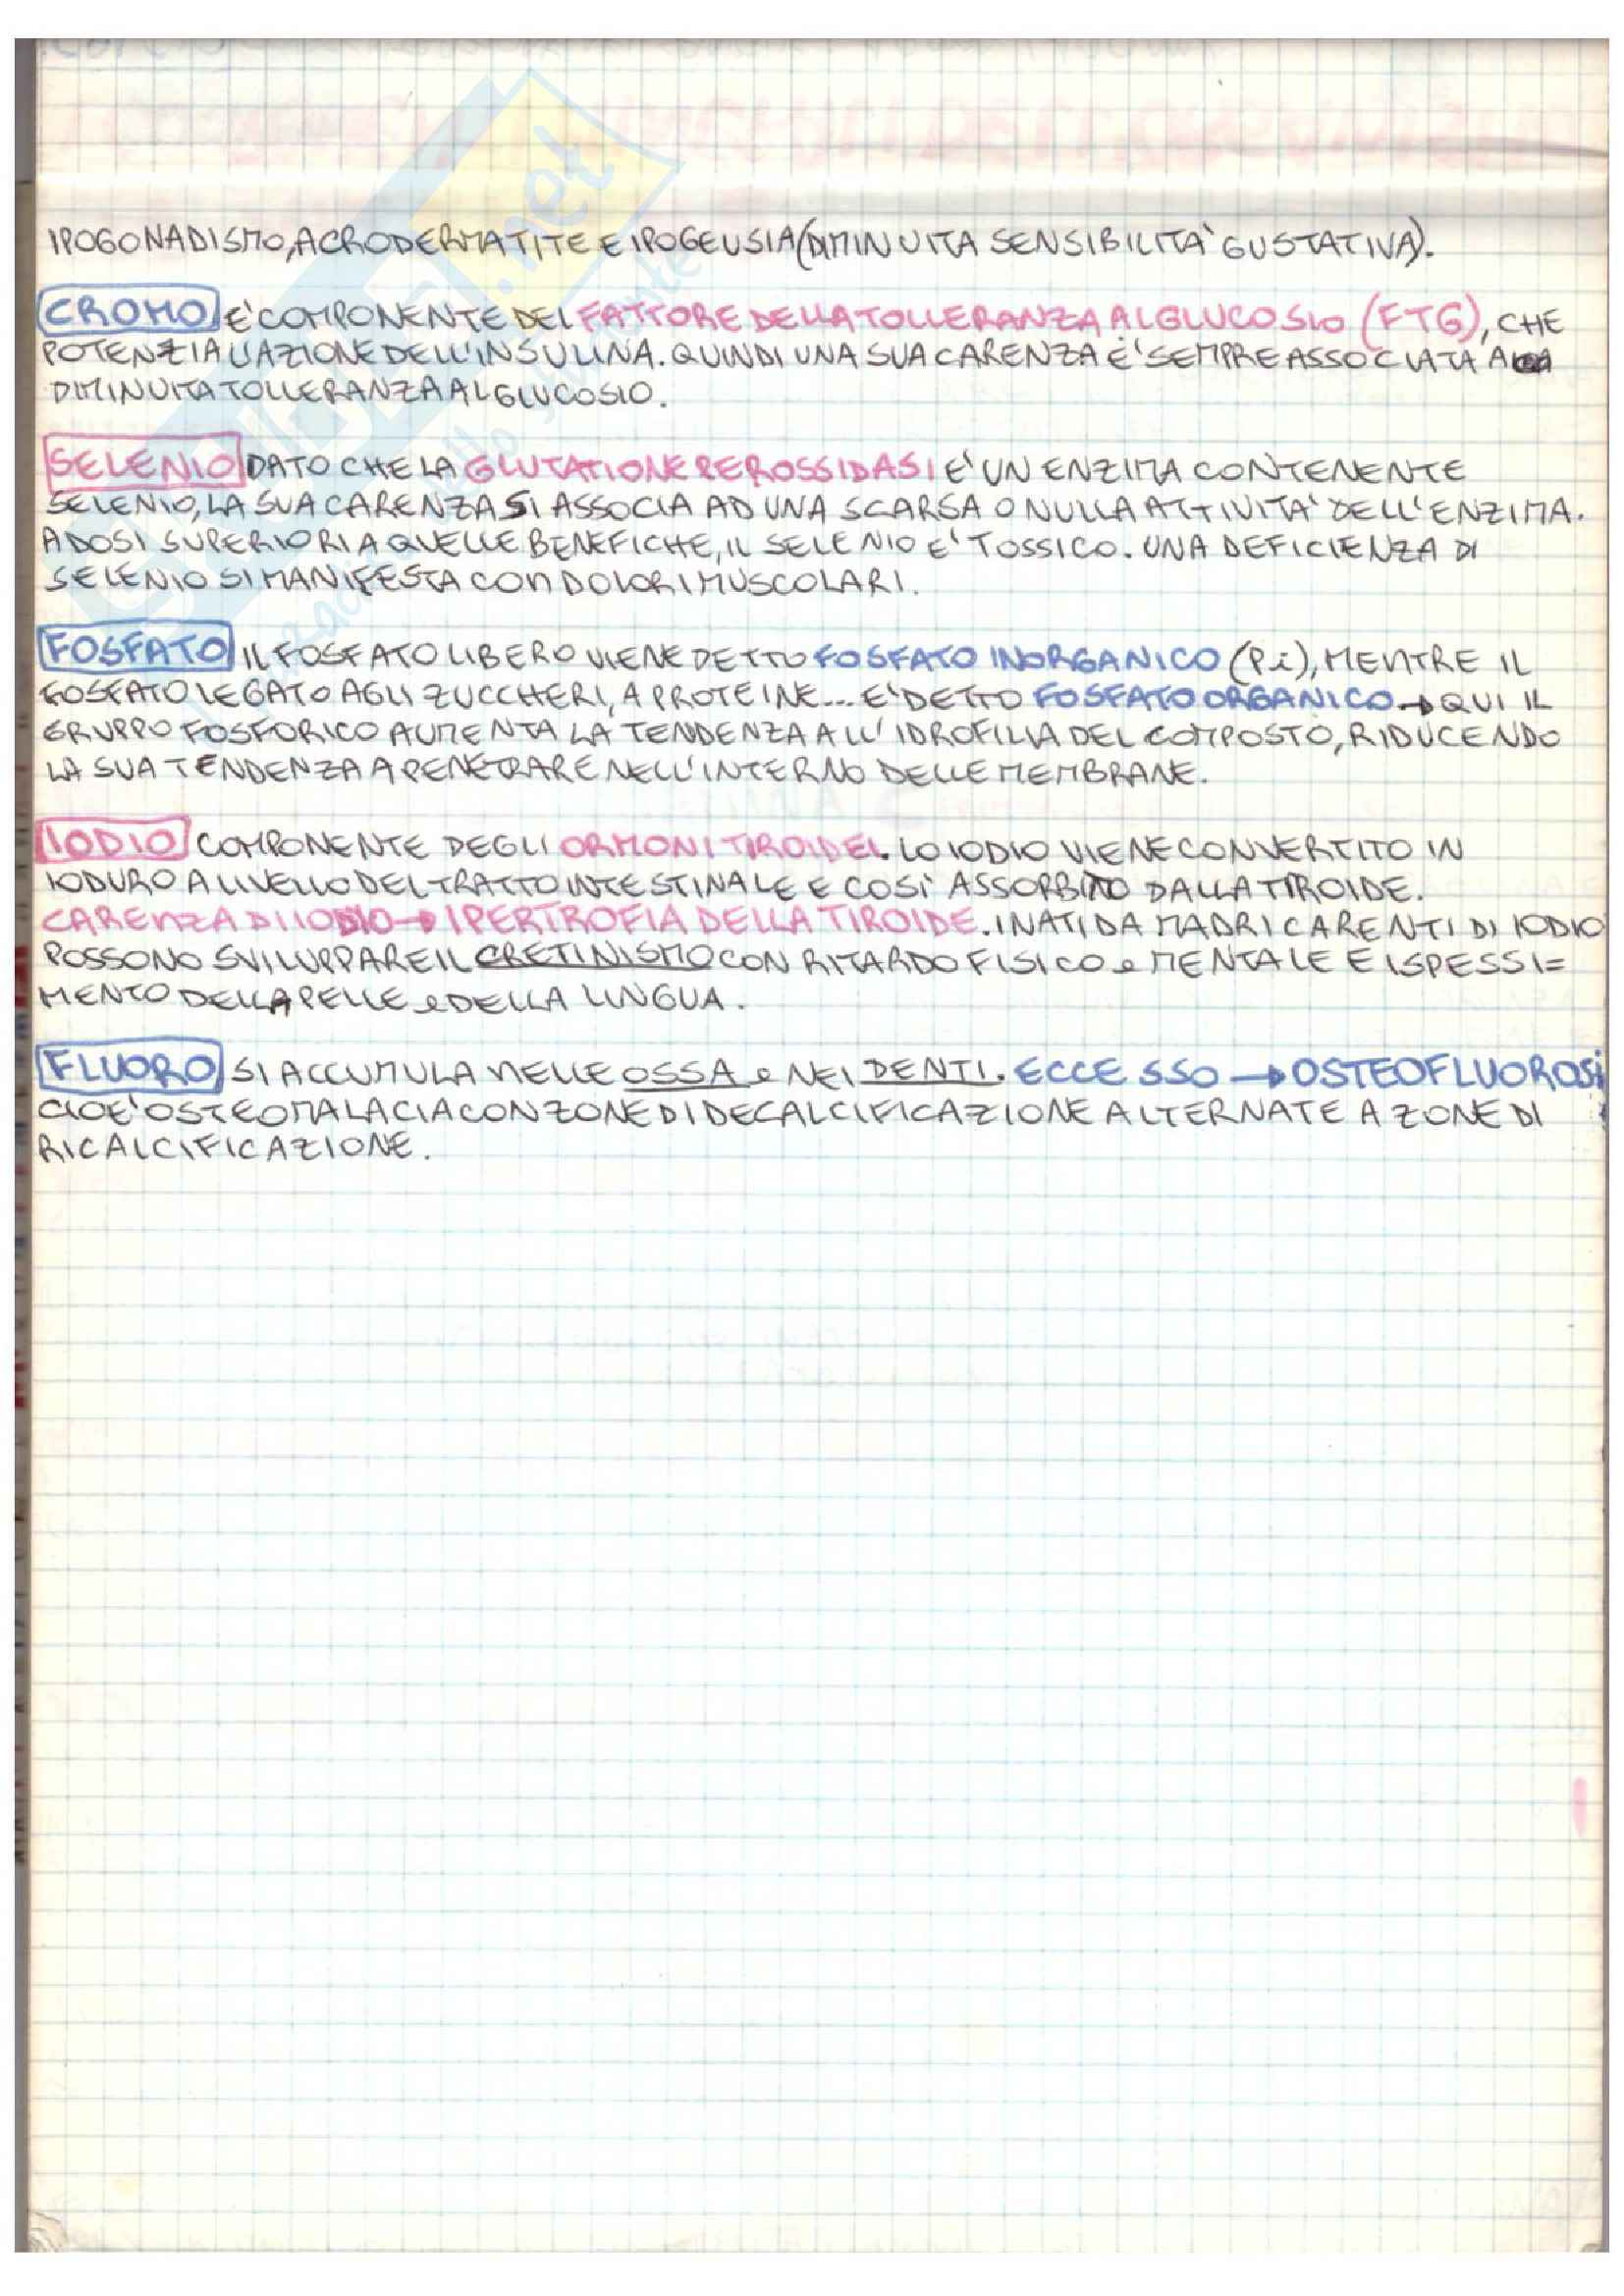 IPOGONADISMO, ACRODERMATITE E IPOGEUSIA (DIMINUITA SENSIBILITA' GUSTATIVA).
CROMO E' COMPONENTE DEL FATTORE DELLA TOLLERANZA AL GLUCOSIO (FTG), CHE
POTENZIA L'AZIONE DELL'INSULINA. QUINDI UNA SUA CARENZA E' SEMPRE ASSOCIATA A
DIMINUITA TOLLERANZA AL GLUCOSIO.
SELENIO DATO CHE LA GLUTATIONE PEROSSIDASI E' UN ENZIMA CONTENENTE
SELENIO, LA SUA CARENZA SI ASSOCIA AD UNA SCARSA O NULLA ATTIVITA' DELL'ENZIMA.
A DOSI SUPERIORI A QUELLE BENEFICHE, IL SELENIO E' TOSSICO. UNA DEFICIENZA DI
SELENIO SI MANIFESTA CON DOLORI MUSCOLARI.
FOSFATO IL FOSFATO LIBERO VIENE DETTO FOSFATO INORGANICO (Pi), MENTRE IL
FOSFATO LEGATO AGLI ZUCCHERI, A PROTEINE... E' DETTO FOSFATO ORGANICO → QUI IL
GRUPPO FOSFORICO AUMENTA LA TENDENZA ALL'IDROFILIA DEL COMPOSTO, RIDUCENDO
LA SUA TENDENZA A PENETRARE NELL'INTERNO DELLE MEMBRANE.
IODIO COMPONENTE DEGLI ORMONI TIROIDEI. LO IODIO VIENE CONVERTITO IN
IODURO A LIVELLO DEL TRATTO INTESTINALE E COSI' ASSORBITO DALLA TIROIDE.
CARENZA DI IODIO → IPERTROFIA DELLA TIROIDE. I NATI DA MADRI CARENTI DI IODIO
POSSONO SVILUPPARE IL CRETINISMO CON RITARDO FISICO e MENTALE E ISPESSI=
MENTO DELLA PELLE e DELLA LINGUA.
FLUORO SI ACCUMULA NELLE OSSA e NEI DENTI. ECCESSO → OSTEOFLUOROSI
CIOE' OSTEOMALACIA CON ZONE DI DECALCIFICAZIONE ALTERNATE A ZONE DI
RICALCIFICAZIONE.